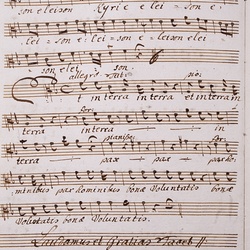 son eleison. Kyrie elei = son e =
= lei = son e = lei = son eleison elei
son elei son.
allegro pio:
t in terra in terra et in terra in
for:
terra in terra in
pianibus:
terra pax pax pax ho:
minibus pax hominibus bonæ Voluntatis bonæ
Voluntatis bonæ Voluntatis.
Laudamus et Gratias tacet //